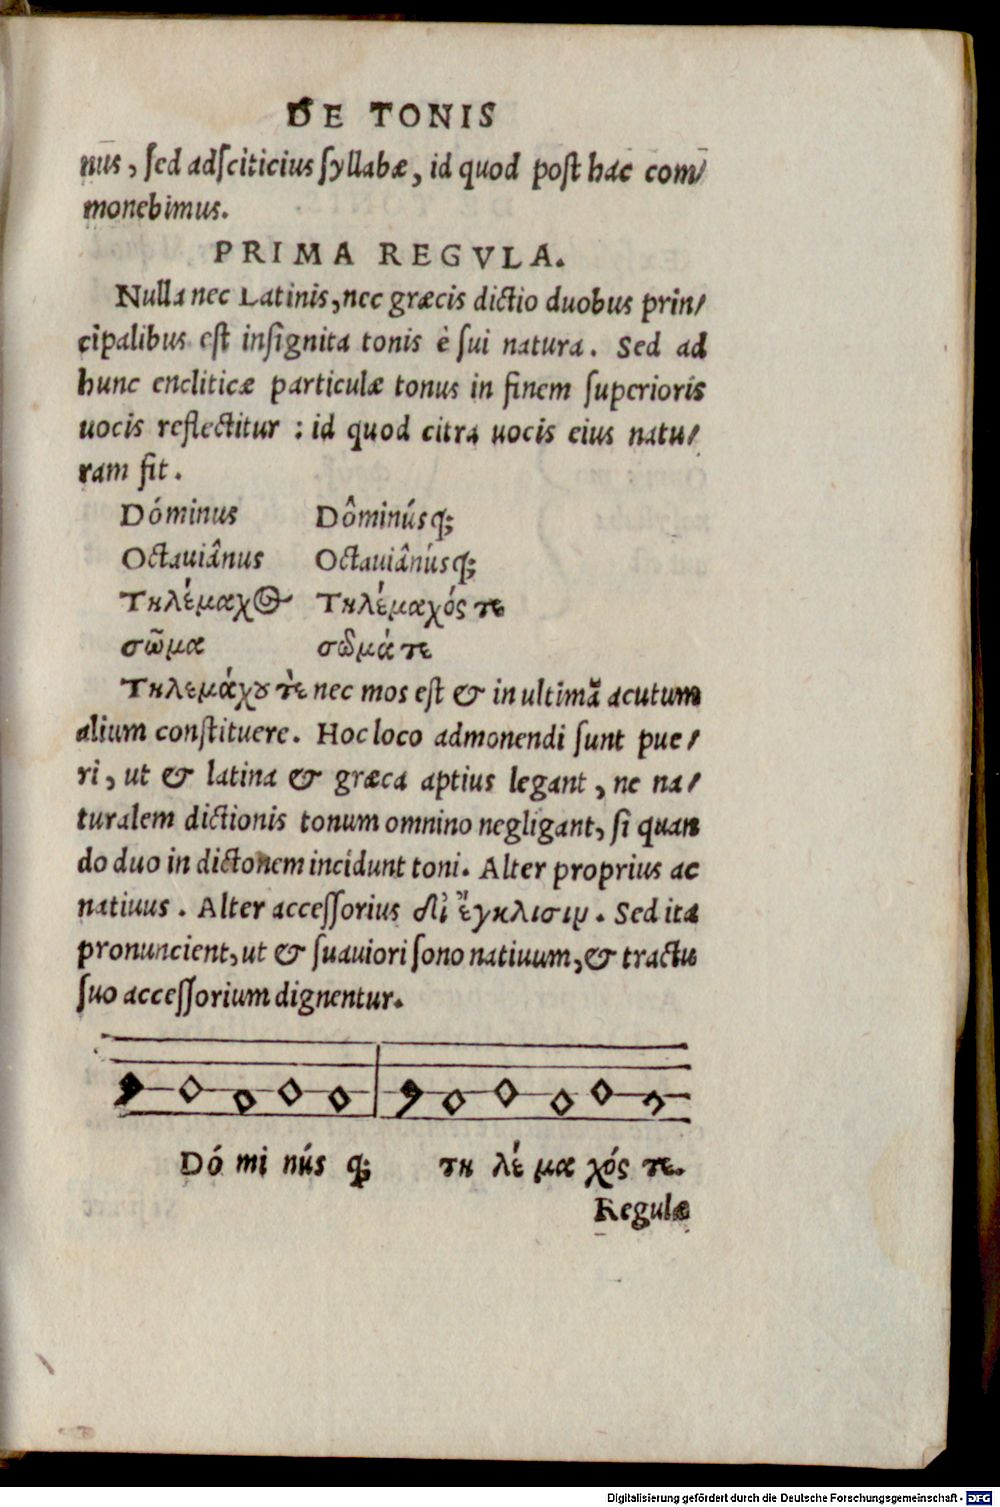 DE TONIS
nūs, ſed adſciticius ſyllabæ, id quod poſt hac com/
monebimus.
PRIMA REGVLA.
Nulla nec Latinis, nec græcis dictio duobus prin/
cipalibus eſt inſignita tonis è ſui natura. Sed ad
hunc encliticæ particulæ tonus in finem ſuperioris
uocis reflectitur : id quod citra uocis eius natu/
ram fit.
Dóminus Dôminúsq;
Octauiânus Octauiânúsq;
Τηλέμαχος Τηλέμαχός τε
σῶμα σῶμά τε
Τηλεμάχου τὲ nec mos eſt & in ultimā acutum
alium conſtituere. Hoc loco admonendi ſunt pue/
ri, ut & latina & græca aptius legant, ne na/
turalem dictionis tonum omnino negligant, ſi quan
do duo in dictonem incidunt toni. Alter proprius ac
natiuus. Alter acceſſorius δι' ἔγκλισιμ. Sed ita
pronuncient, ut & ſuauiori ſono natiuum, & tractu
ſuo acceſſorium dignentur.
Dó mi nús q; τη λέ μα χός τε.
Regulæ
Digitalisierung gefördert durch die Deutsche Forschungsgemeinschaft - DFG